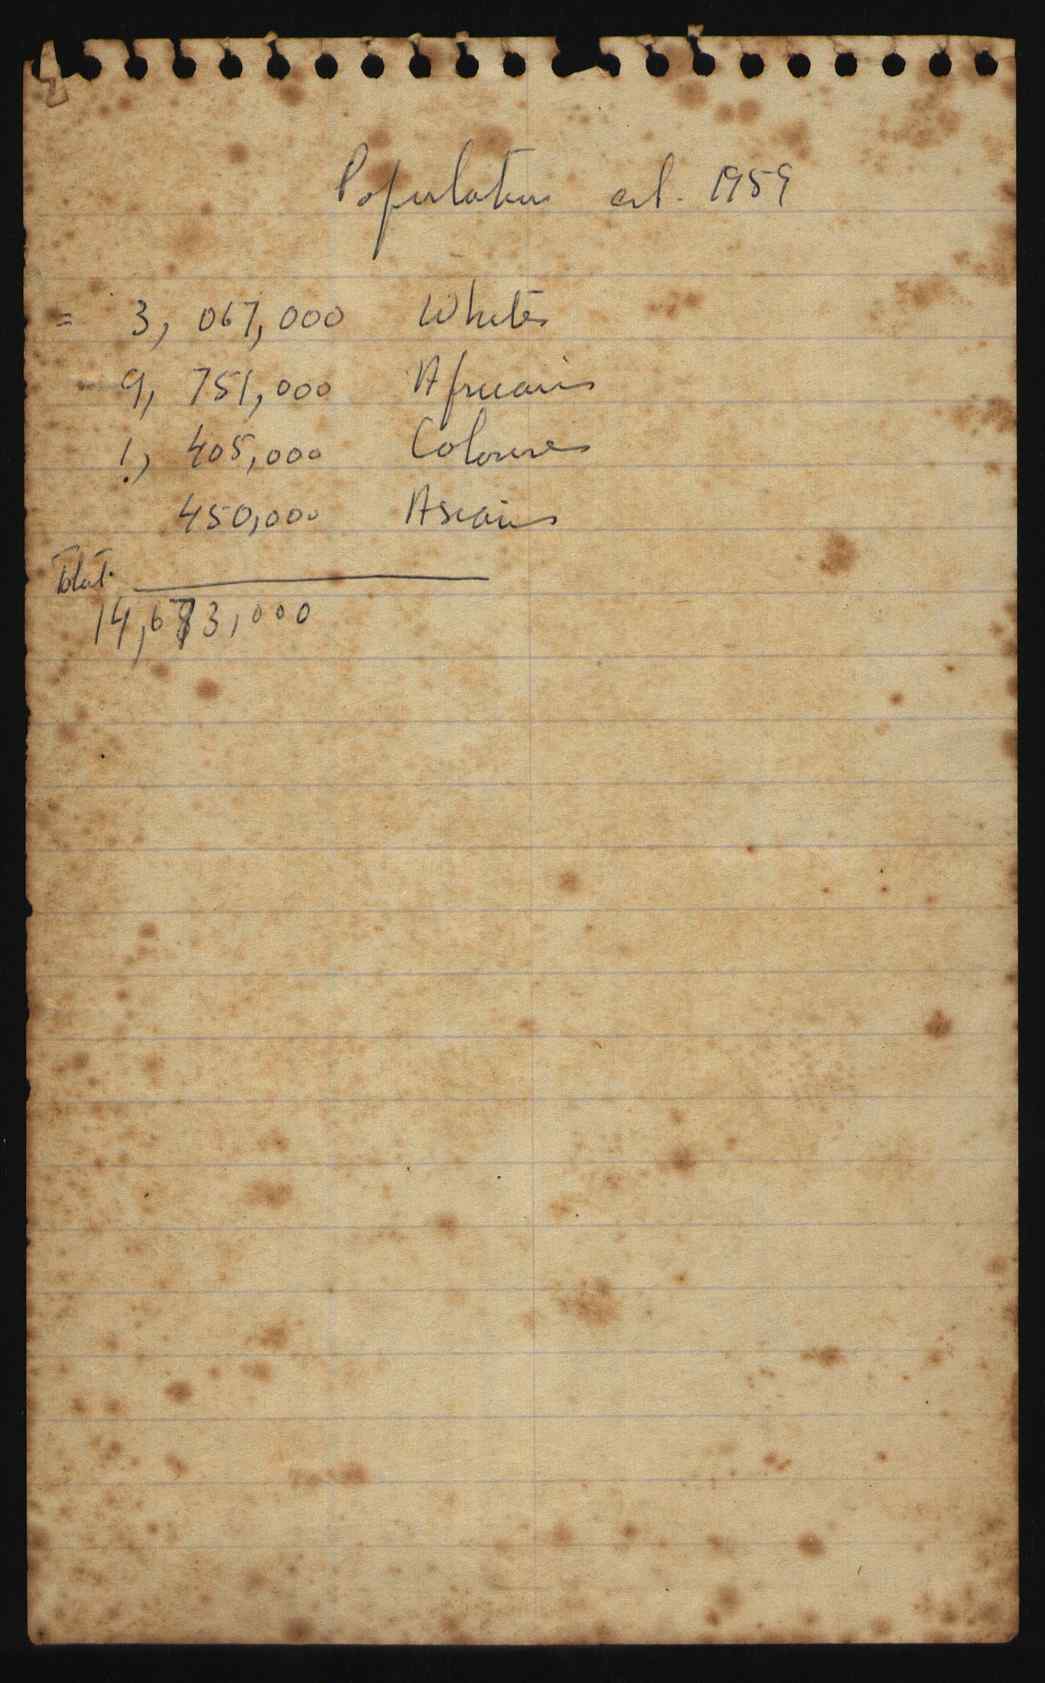 Population est. 1959
= 3,067,000 Whites
9,751,000 Africans
1,405,000 Coloures
450,000 Asians
Total.
14,673,000